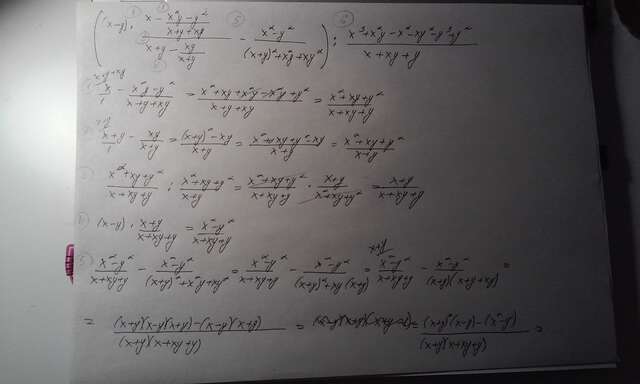 ((x-y) · (x - (x²y - y²)/(x+y+xy)) / (x+y - xy/(x+y)) - (x²-y²)/((x+y)²+x²y+xy²)) : (x³+x²y-x²-xy²-y³+y²)/(x+xy+y)
1) x/1 - (x²y-y²)/(x+y+xy) = (x²+xy+x²y-x²y+y²)/(x+y+xy) = (x²+xy+y²)/(x+xy+y)
(x+y)/1 - xy/(x+y) = ((x+y)²-xy)/(x+y) = (x²+2xy+y²-xy)/(x+y) = (x²+xy+y²)/(x+y)
(x²+xy+y²)/(x+xy+y) : (x²+xy+y²)/(x+y) = (x²+xy+y²)/(x+xy+y) · (x+y)/(x²+xy+y²) = (x+y)/(x+xy+y)
(x-y) · (x+y)/(x+xy+y) = (x²-y²)/(x+xy+y)
(x²-y²)/(x+xy+y) - (x²-y²)/((x+y)²+x²y+xy²) = (x²-y²)/(x+xy+y) - (x²-y²)/((x+y)²+xy(x+y)) = (x²-y²)/(x+xy+y) - (x²-y²)/((x+y)(x+y+xy)) =
= ((x+y)(x-y)(x+y)-(x-y)(x+y))/((x+y)(x+xy+y)) = = ((x+y)²(x-y)-(x²-y²))/((x+y)(x+xy+y)) =